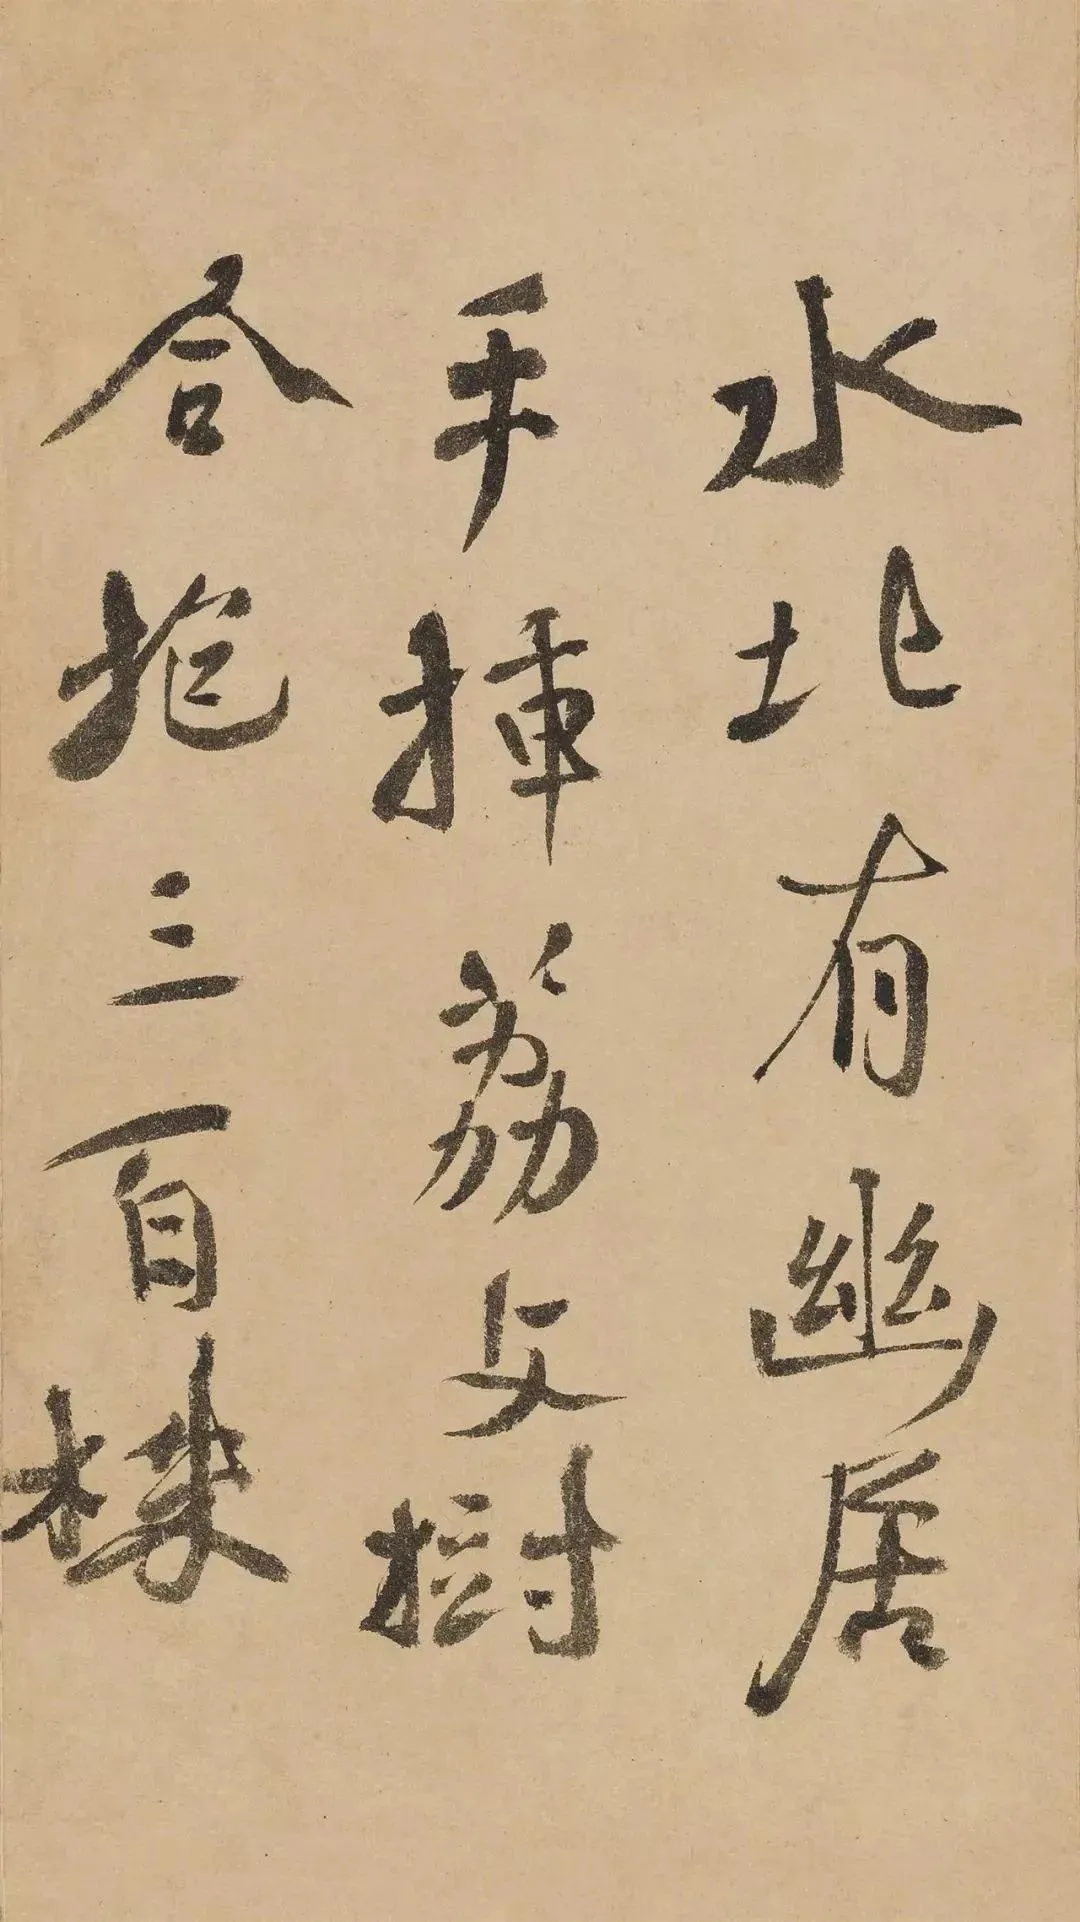 水北有幽居
手挿荔支樹
合抱三百株